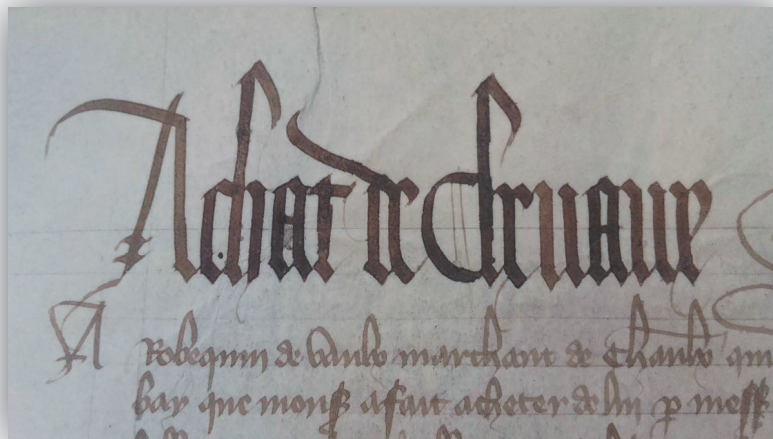 Achat de chevaux
A Robequin de Vaulx marchant de chaulx qui
bay que monsr a fait acheter de lui p mess